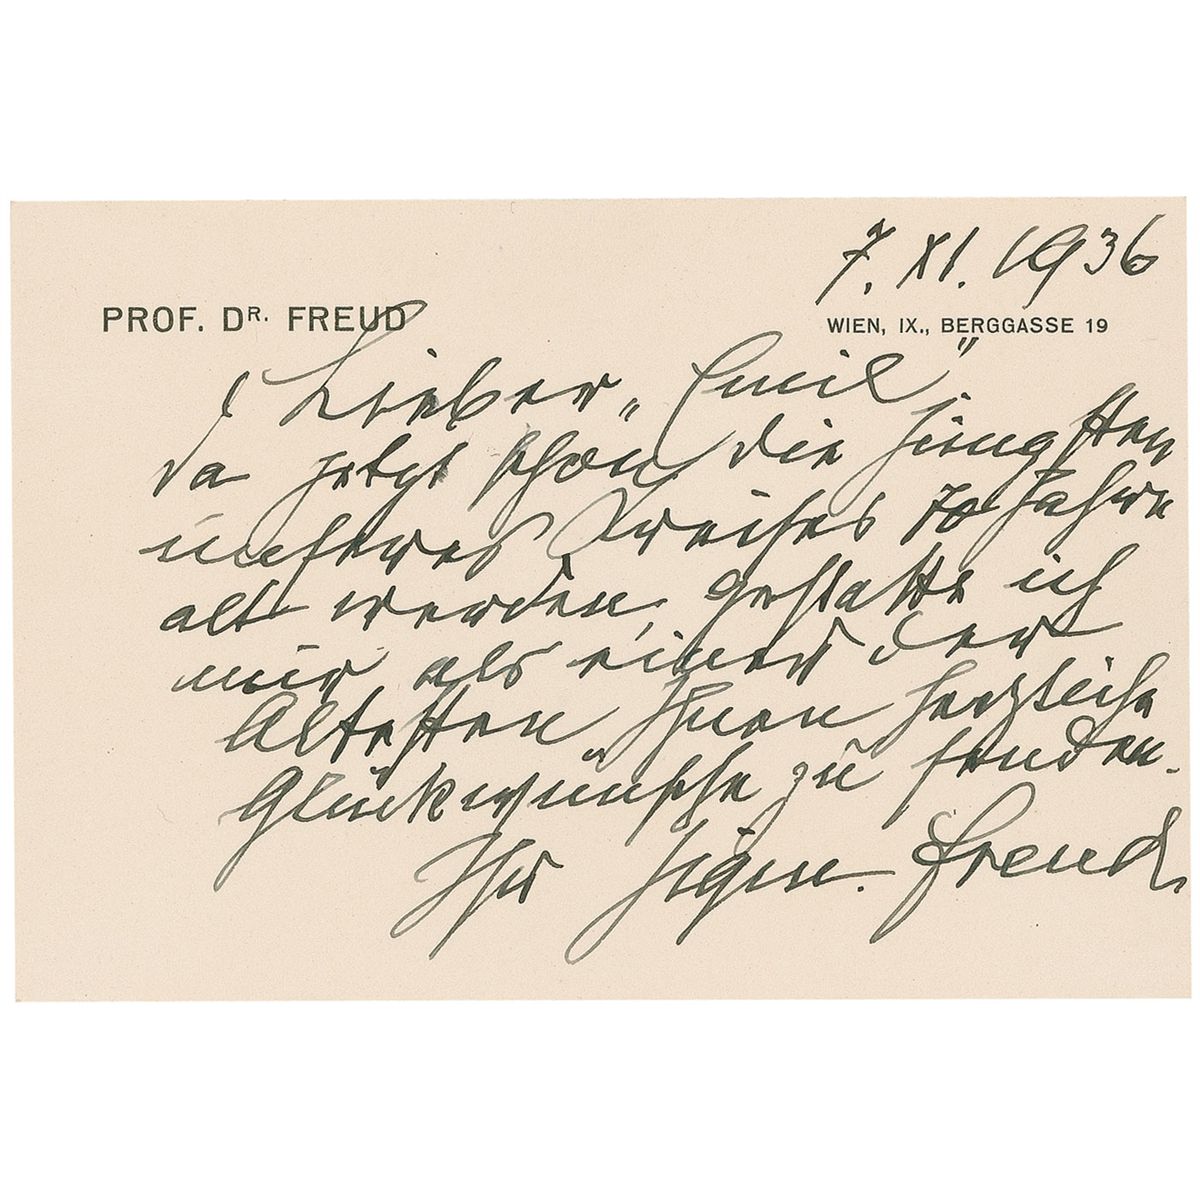 7. XI. 1936
PROF. DR. FREUD
WIEN, IX., BERGGASSE 19
Lieber „Emil“
Da jetzt schon die jüngsten
unseres Kreises 70 Jahre
alt werden, gestatte ich
mir als einer der
Ältesten Ihnen herzliche
Glückwünsche zu senden.
Ihr Sigm. Freud